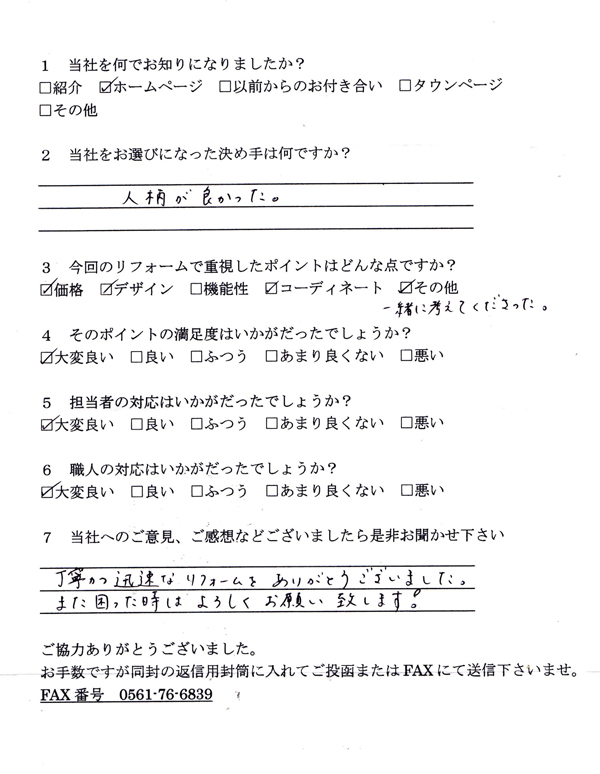 1 当社を何でお知りになりましたか?
□紹介 ☑ホームページ □以前からのお付き合い □タウンページ
□その他
2 当社をお選びになった決め手は何ですか?
人柄が良かった。
3 今回のリフォームで重視したポイントはどんな点ですか?
☑価格 ☑デザイン □機能性 ☑コーディネート ☑その他
一緒に考えてくださった。
4 そのポイントの満足度はいかがだったでしょうか?
☑大変良い □良い □ふつう □あまり良くない □悪い
5 担当者の対応はいかがだったでしょうか?
☑大変良い □良い □ふつう □あまり良くない □悪い
6 職人の対応はいかがだったでしょうか?
☑大変良い □良い □ふつう □あまり良くない □悪い
7 当社へのご意見、ご感想などございましたら是非お聞かせ下さい
丁寧かつ迅速なリフォームを ありがとうございました。
また困った時は よろしくお願い致します!
ご協力ありがとうございました。
お手数ですが同封の返信用封筒に入れてご投函またはFAXにて送信下さいませ。
FAX番号 0561-76-6839